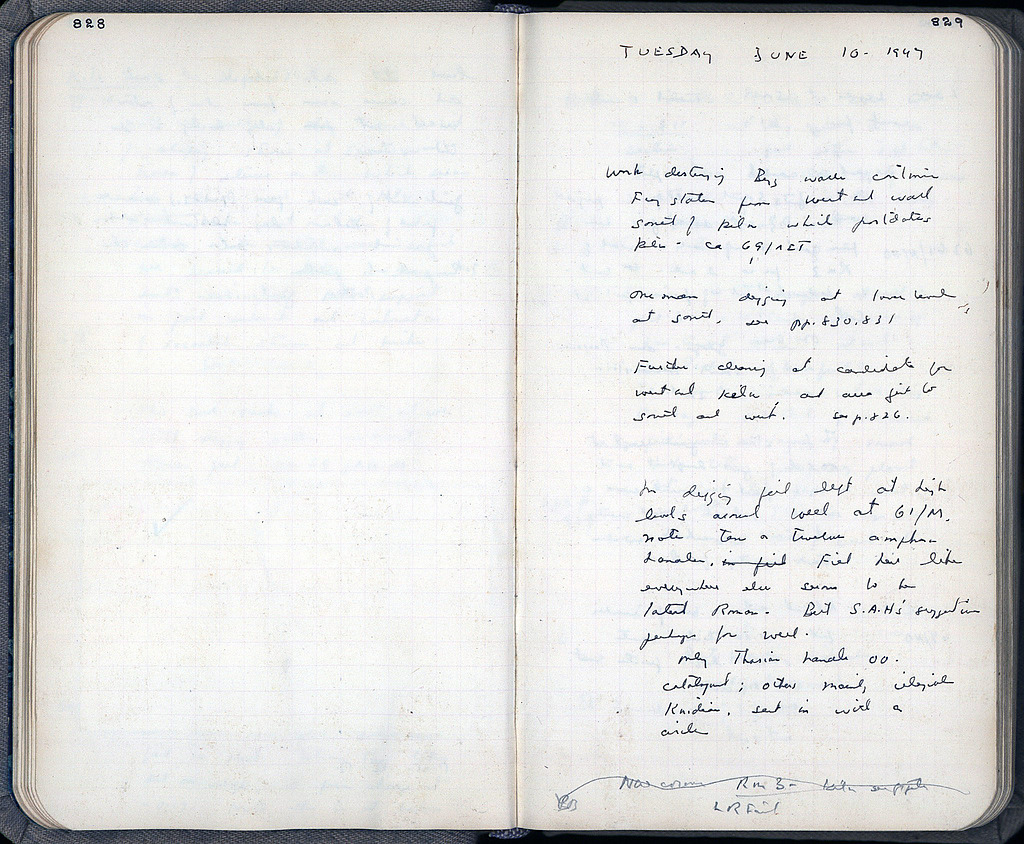 828
829
TUESDAY JUNE 10 - 1947
Work destroying Byz water
Few staters from west end wall
south of kiln which postdates
kiln - ca 69/ΛΣΤ
one man digging at lower levels
at south. see pp. 830, 831
Further cleaning at candidate for
west end kiln, and area just to
south and west. see p. 826.
In digging fill left at high
levels around well at 61/M,
note ten or twelve amphora
handles, in fill Fill here like
everywhere else seems to be
latest Roman. But S.A.H's suggestion
perhaps for well.
only Thasian handle oo.
catalogued; others mainly illegible
Knidian, sent in with a
circle
Rm 3 -
LR Fill